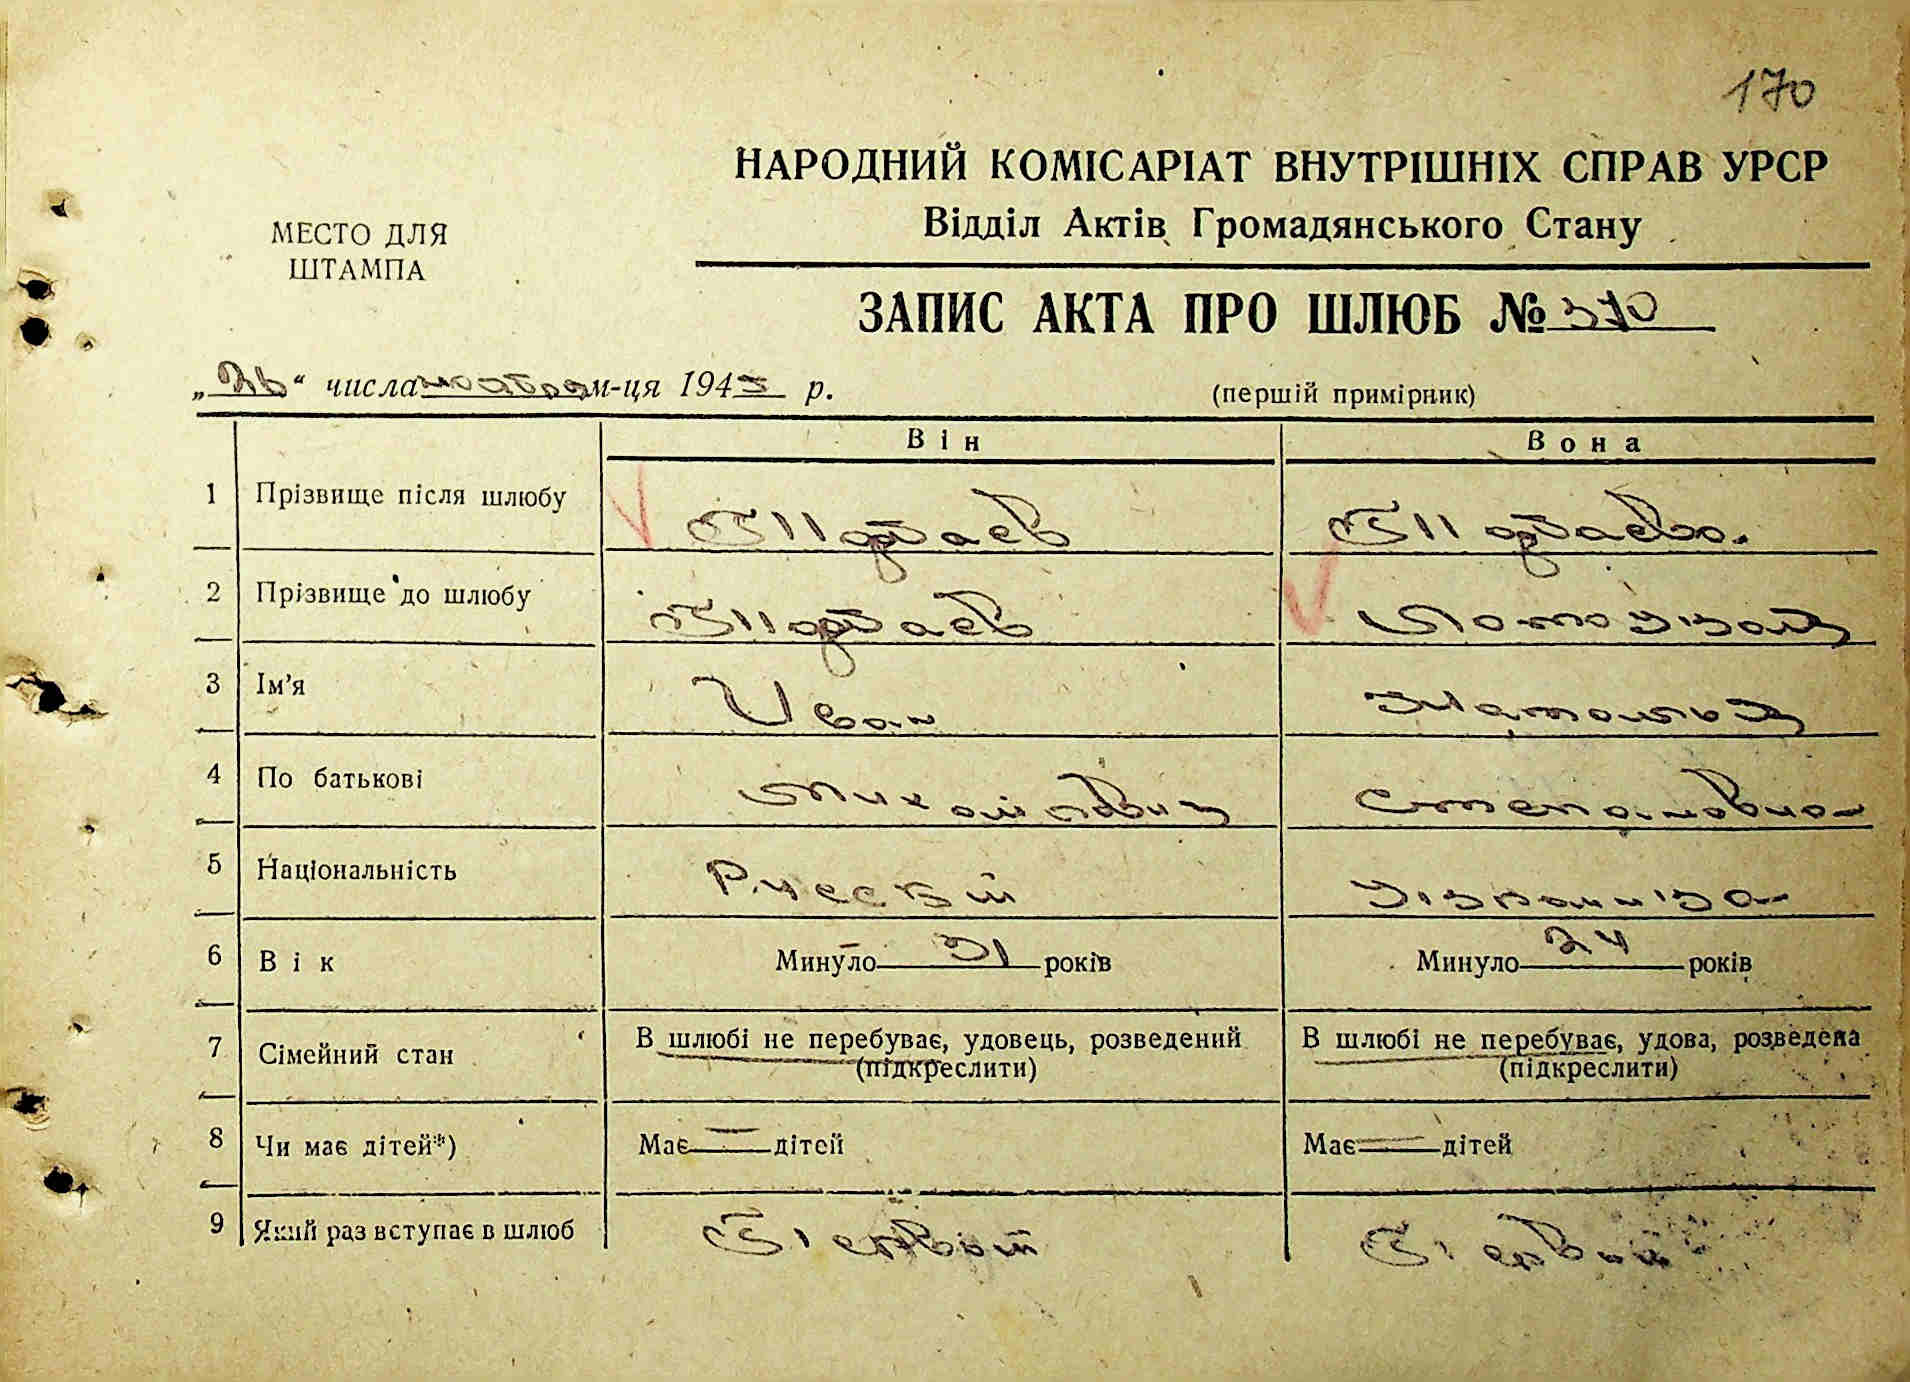 170
НАРОДНИЙ КОМІСАРІАТ ВНУТРІШНІХ СПРАВ УРСР
Відділ Актів Громадянського Стану
МЕСТО ДЛЯ
ШТАМПА
ЗАПИС АКТА ПРО ШЛЮБ № 370
„26“ числа ноября м-ця 1943 р.
(першій примірник)
Він Вона
1 Прізвище після шлюбу
2 Прізвище до шлюбу
3 Ім’я Иван
4 По батькові Степановна
5 Національність Русский Украинка
6 Вік Минуло 31 років Минуло 24 років
7 Сімейний стан В шлюбі не перебуває, удовець, розведений В шлюбі не перебуває, удова, розведена
(підкреслити) (підкреслити)
8 Чи має дітей*) Має — дітей Має — дітей
9 Який раз вступає в шлюб Первый Первый